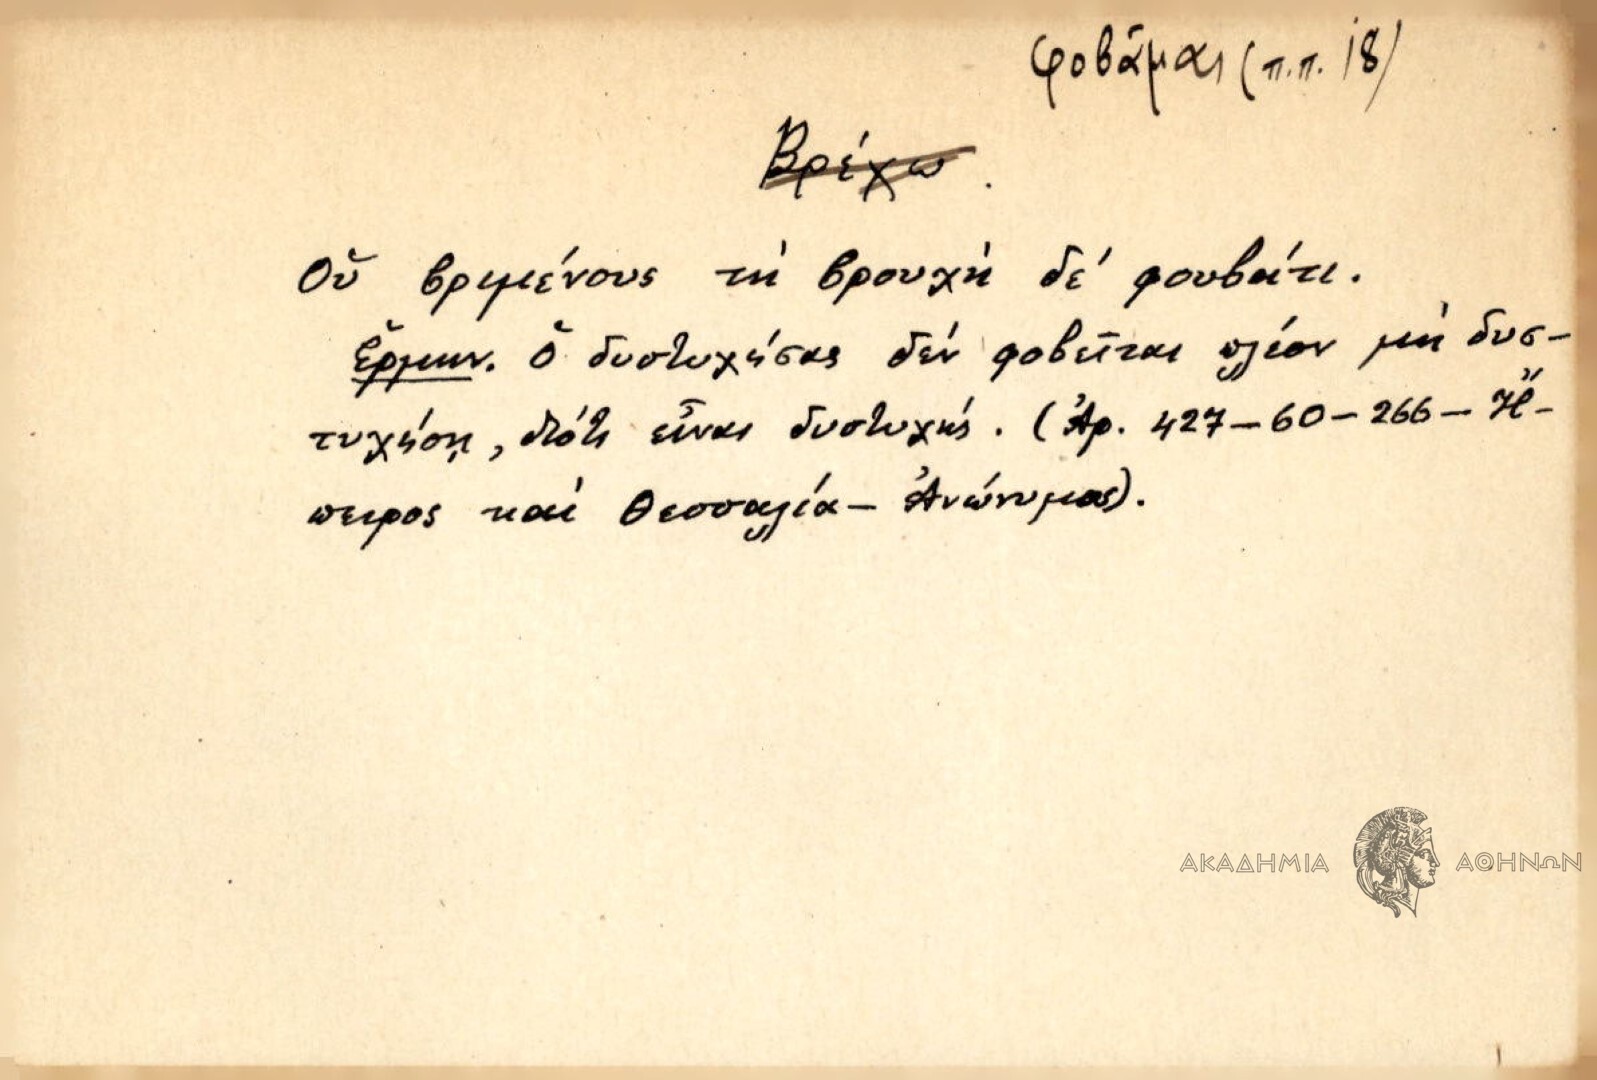 φοβᾶμαι (π.π. 18)
Βρέχω.
Οὑ βριμένους τὴ βρουχὴ δὲ φουβᾶτι.
Ἑρμην. Ὁ δυστυχήσας δὲν φοβεῖται πλέον μὴ δυσ-
τυχήσῃ, διότι εἶναι δυστυχής. (Ἀρ. 427-60-266-Ἤ-
πειρος καὶ Θεσσαλία-Ἀνώνυμος).
ΑΚΑΔΗΜΙΑ ΑΘΗΝΩΝ